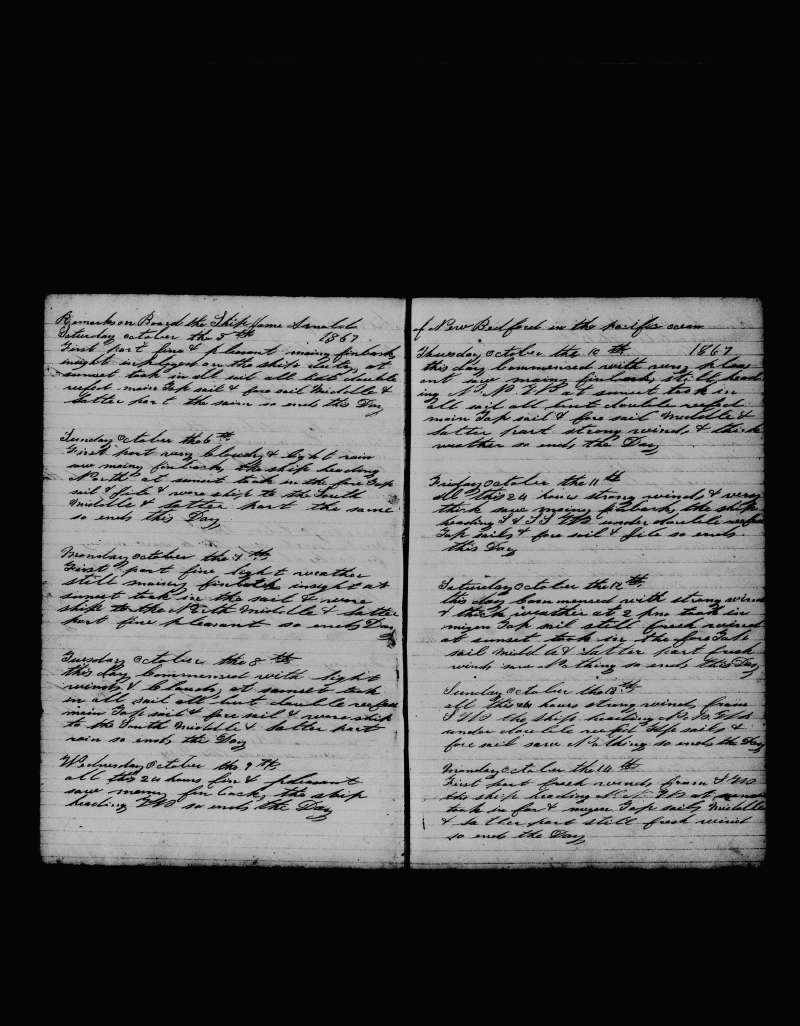 Remarks on Board the Ship James Arnold
Saturday october the 5th 1867
First part fine & pleasant maney finback
insight imployed on the ships duty at
sunset took in all sail all but double
reefed main Top sail & fore sail Middle &
Latter part the same so ends this Day
Sunday october the 6th
First part very Cloudy & light rain
saw maney finback the ship heading
North at sunset took in the fore Top
sail & gibe & wore ship to the South
Middle & Latter part the same
so ends this Day
Monday october the 7th
First part fine light weather
still maney finback insight at
sunset took in the sail & wore
ship to the North Middle & Latter
part fine pleasant so ends Day
Tuesday october the 8th
this day Commensed with light
winds & Cloudy at sunset took
in all sail all but double reefed
main Top sail & fore sail & wore ship
to the South Middle & Latter part
rain so ends the Day
Wednesday october the 9th
all this 24 hours fine & pleasant
saw maney fin back, the ship
heading so ends the Day
of New Bedford in the pacific ocean
Thursday october the 10th 1867
this day Commensed with very pleas
ant saw maney finback still head
ing N. N. at sunset took in
all sail all but double reefed
main Top sail & fore sail Middle &
Latter part strong winds & thick
weather so ends the Day
Friday october the 11th
all this 24 hours strong winds & very
thick saw maney finback, the ship
heading S & under double reefed
Top sails & fore sail & gibe so ends
this Day
Saturday october the 12th
this day Commensed with strong winds
& thick weather at 2 pm took in
mizen Top sail still fresh wind
at sunset took in the fore Top
sail Middle & Latter part fresh
winds saw Nothing so ends this Day
Sunday october the 13th
all this 24 hours strong winds from
the ship heading
under double reefed Top sails &
fore sail saw Nothing so ends the Day
Monday october the 14th
First part fresh winds from
the ship heading at sunset
took in for & mizen Top sails Middle
& Latter part still fresh wind
so ends the Day